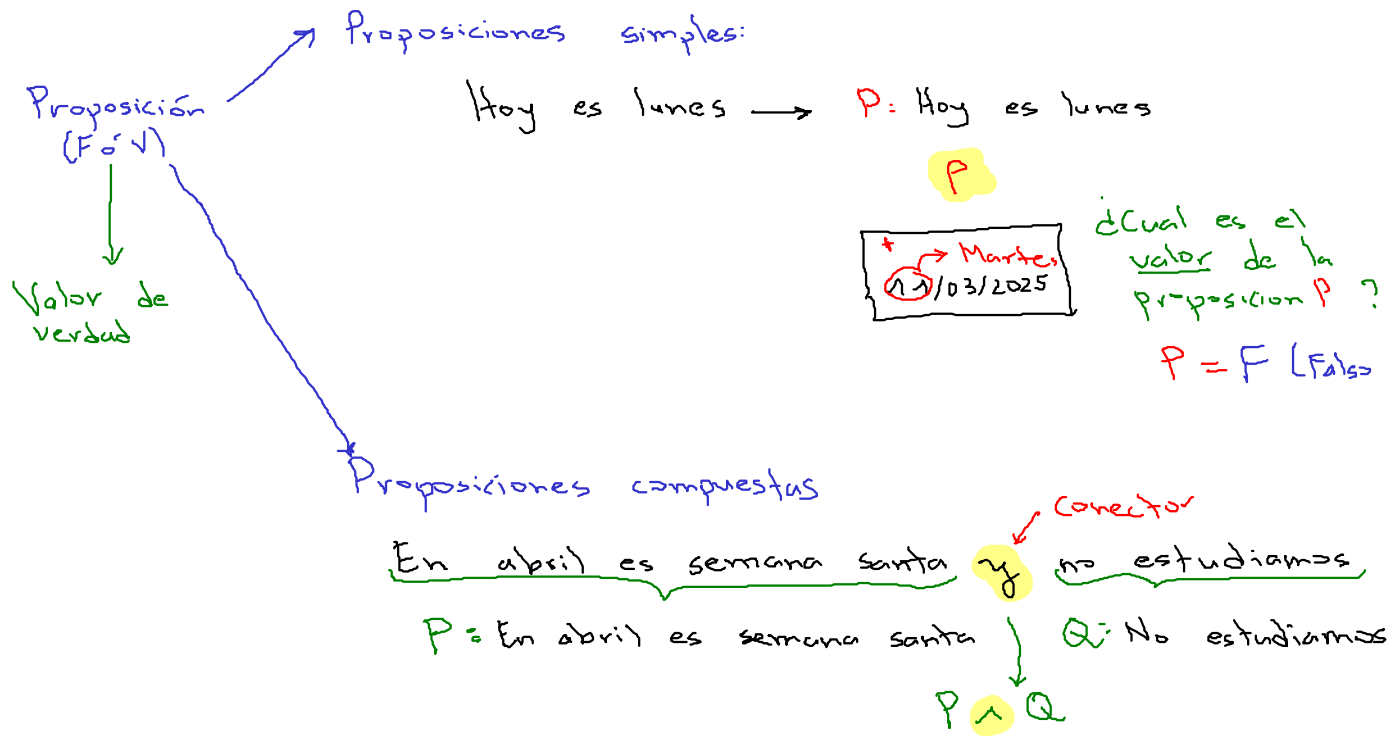 Proposiciones simples:
Proposición
(F ó V)
Valor de
verdad
Hoy es lunes → P: Hoy es lunes
P
* Martes
11/03/2025
¿Cual es el
valor de la
proposicion P ?
P = F (Falso
Proposiciones compuestas
conector
En abril es semana santa y no estudiamos
P: En abril es semana santa Q: No estudiamos
P ∧ Q